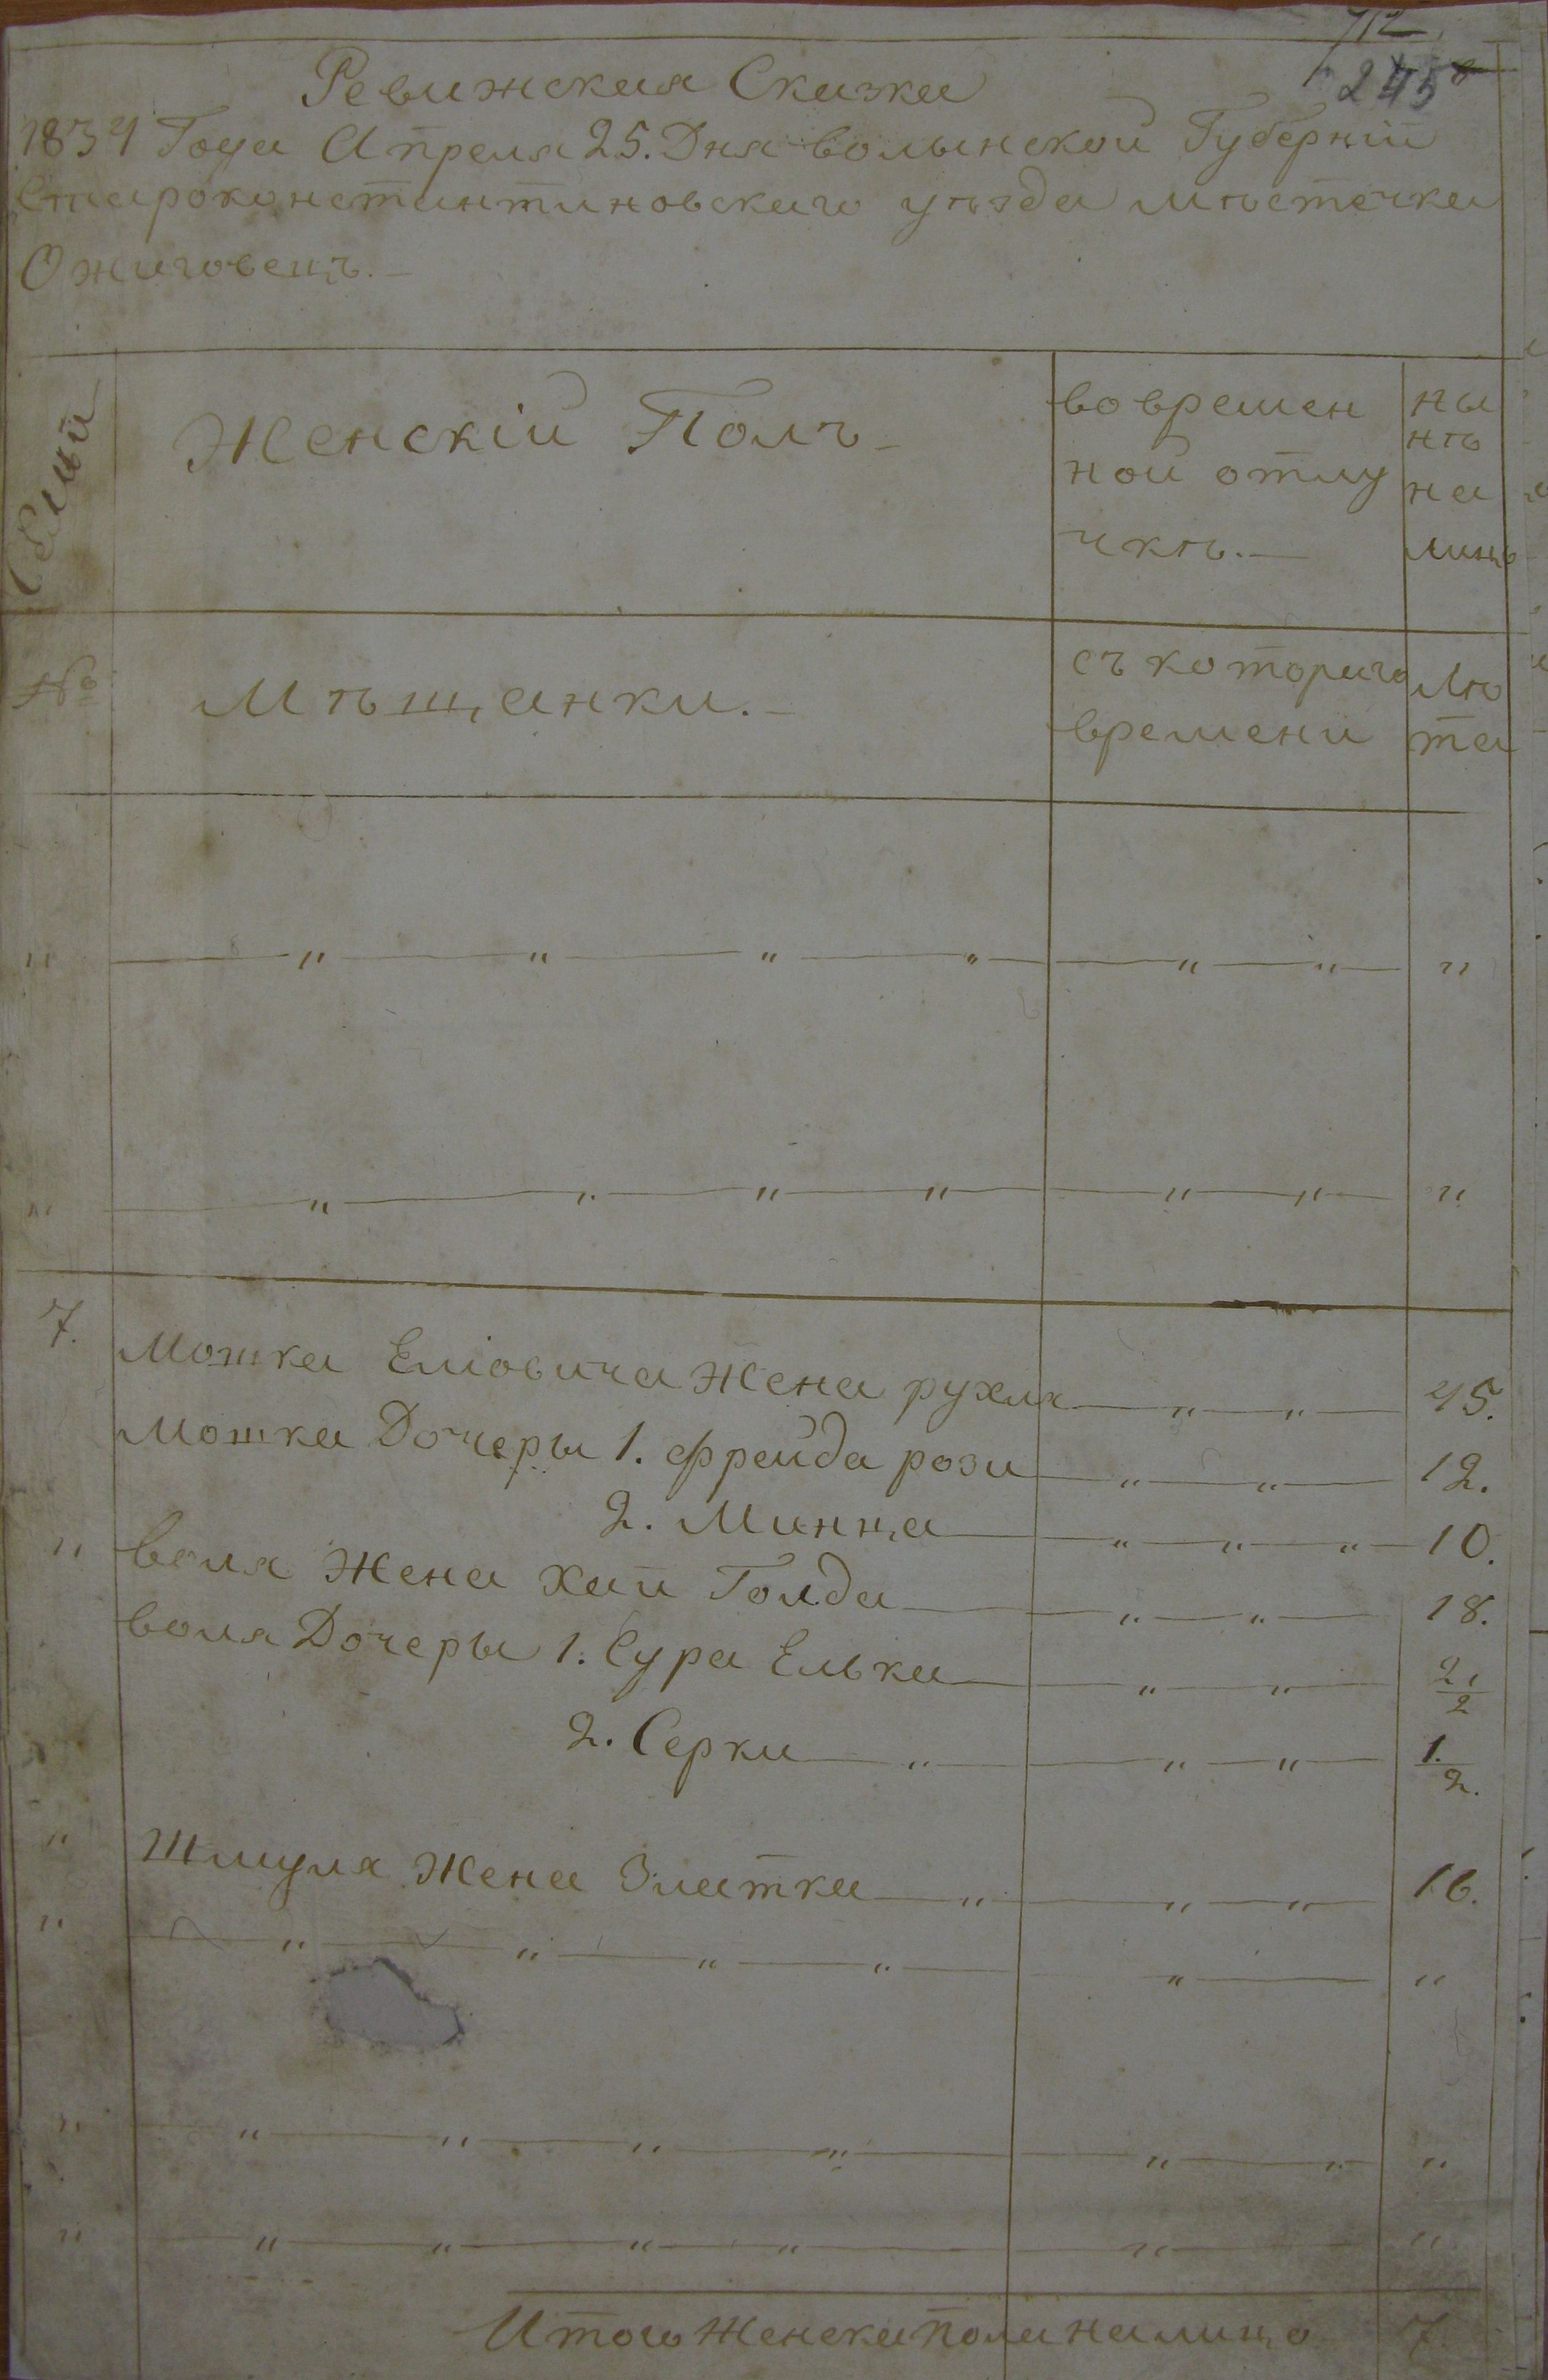 712
245
Ревижская Сказка
1834 Года Апреля 25. Дня волынской Губерніи
Староконстантиновскаго уѣзда мѣстечка
Ожиговецъ.
Семьи
Женскій Полъ
во времен
ной отлу
чкѣ.
ны
нѣ
на
лицо
№
Мѣщанки.
съ котораго
времени
Лѣ
та
" " " " " " " "
" " " " " " " "
7. Мошка Еліовича жена рухля " " 45.
Мошка Дочеры 1. Фрейда рози " " 12.
2. Минца " " " 10.
" воля жена Хай Голда " " 18.
воля Дочеры 1. Сура Елька " " 2 1/2
2. Серки " " " 1/2.
" Шмуля жена Златка " " " 16.
" " " " " " "
" " " " " " " "
" " " " " " "
Итого женска пола налицо 7